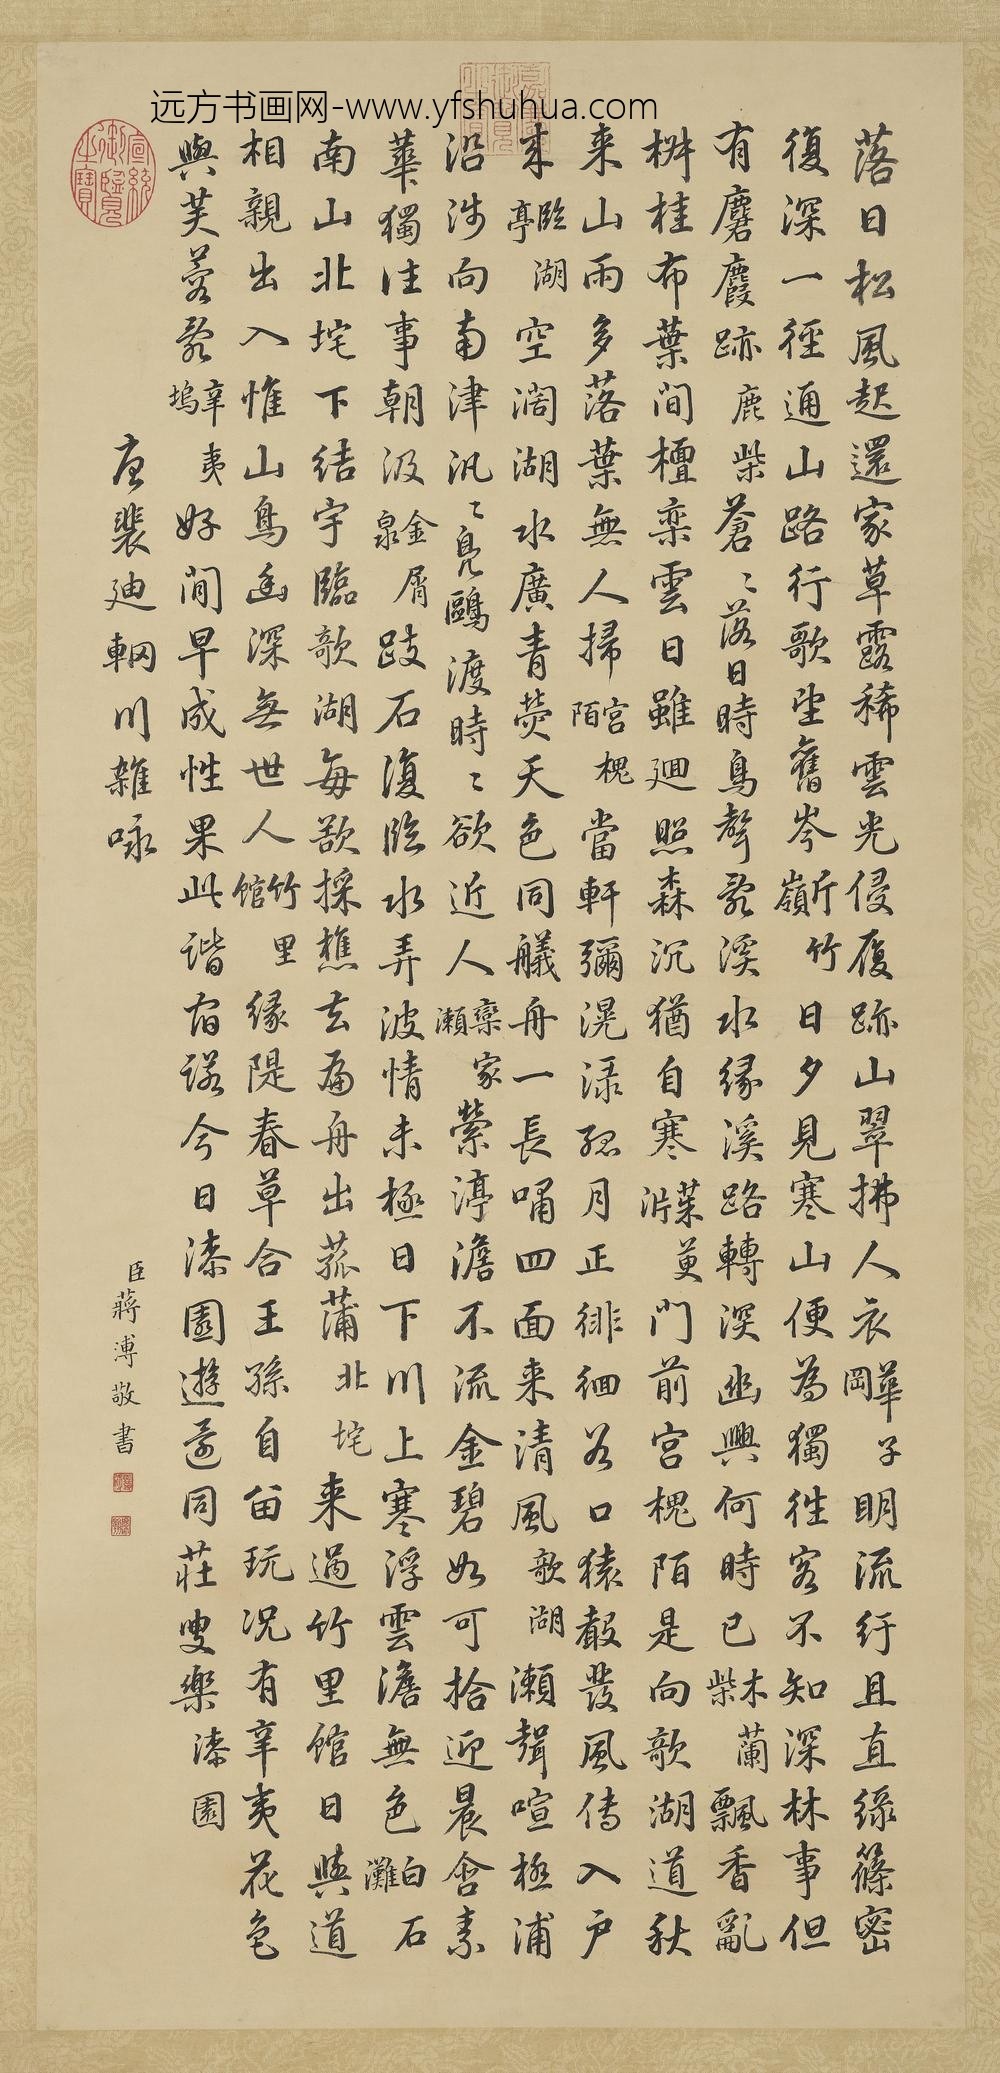 远方书画网-www.yfshuhua.com
落日松風起還家草露稀雲光侵履跡山翠拂人衣華子岡明流紆且直綠篠密
復深一徑通山路行歌望舊岑斤竹嶺日夕見寒山便為獨徃客不知深林事但
有麏麚跡鹿柴蒼〻落日時鳥聲亂溪水緣溪路轉深幽興何時已木蘭柴飄香亂
椒桂布葉間檀欒雲日雖迴照森沉猶自寒茱萸沜門前宮槐陌是向歌湖道秋
来山雨多落葉無人掃宮槐陌當軒彌滉漾孤月正徘徊谷口猿聲發風傳入户
来臨湖亭空濶湖水廣青熒天色同艤舟一長嘯四面来清風歌湖瀨聲喧極浦
沿涉向南津汎〻鳧鷗渡時〻欲近人欒家瀨縈渟澹不流金碧如可拾迎晨含素
華獨徃事朝汲金屑泉跂石復臨水弄波情未極日下川上寒浮雲澹無色白石灘
南山北垞下結宇臨歌湖每欲採樵去扁舟出菰蒲北垞来過竹里館日與道
相親出入惟山鳥幽深無世人竹里館緣隄春草合王孫自留玩况有辛夷花色
與芙蓉亂辛夷塢好閒早成性果此諧宿諾今日漆園遊還同莊叟樂漆園
唐裴迪輞川雜咏
臣蔣溥敬書
宣統御覽之寶